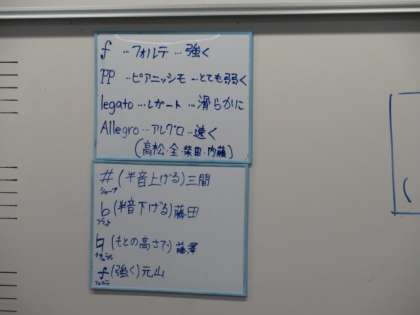 f …フォルテ … 強く
pp …ピアニッシモ …とても弱く
legato …レガート … 滑らかに
Allegro …アレグロ … 速く
(高松・全・柴田・内藤)
# (半音上げる) 三間
シャープ
b (半音下げる) 藤田
フラット
♮ (もとの高さで) 藤澤
ナチュラル
f (強く) 元山
フォルテ